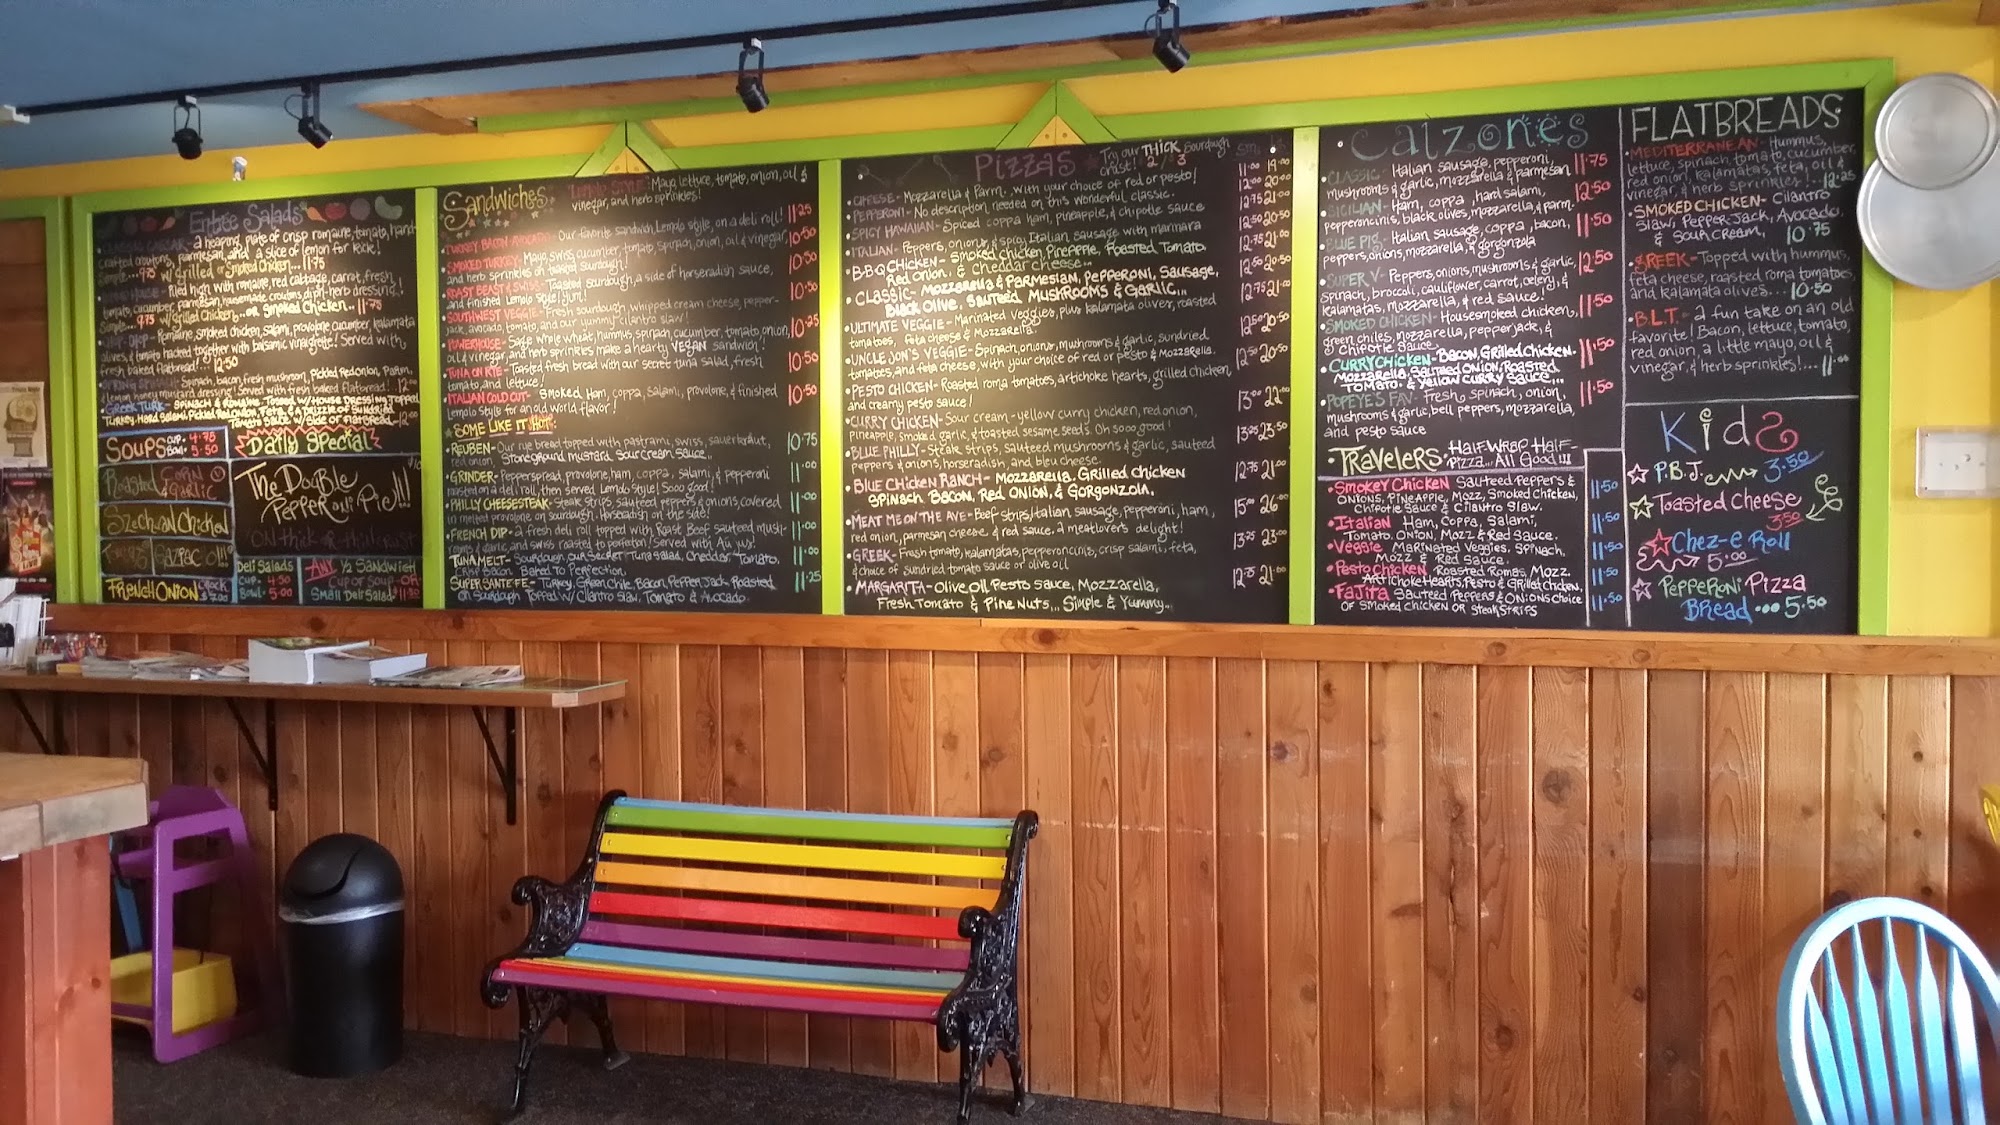 Entrée Salads
CLASSIC CAESAR - a heaping plate of crisp romaine, tomato, hand
crafted croutons, parmesan, and a slice of lemon for kick!
Simple... 9.75 w/ Grilled or Smoked Chicken... 11.75
HOUSE - Piled high with romaine, red cabbage, carrot, fresh
tomato, cucumber, parmesan, housemade croutons, dipt-herb dressing!
Simple... 9.75 w/ Grilled Chicken... or Smoked Chicken... 11.75
CHOP-CHOP - Romaine, smoked chicken, salami, provolone, cucumber, kalamata
olives, & tomato hacked together with balsamic vinaigrette! Served with
fresh baked flatbread!! 12.50
SPRING SPINACH - Spinach, bacon, fresh mushroom, Pickled Red Onion, Parm,
& lemon honey mustard dressing! Served with fresh baked flatbread!... 12.00
GREEK TURK - Spinach & Romaine Tossed w/ House Dressing Topped w/
Turkey, Hard Salami, Pickled Red Onion, Feta, & a Drizzle of Sundried
Tomato Sauce w/ Side of Flatbread... 12.00
SOUPS CUP. 4.75
Bowl. 5.50
Roasted Corn & Garlic
Szechuan Chicken
GAZPACHO!!
FRENCH ONION Crock 7.00
Daily Special
The Double
Pepperoni Pie!!!
ON thick or thin crust
Deli Salads
Cup. 4.50
Bowl. 5.00
ANY 1/2 SANDWICH
CUP OF SOUP - OR -
SMALL Deli Salad $11.50
Sandwiches
"Lemolo STYLE": Mayo, lettuce, tomato, onion, oil &
vinegar, and herb sprinkles!
TURKEY BACON AVOCADO - Our favorite sandwich, Lemolo style, on a deli roll! 11.25
SMOKED TURKEY - Mayo, swiss, cucumber, tomato, spinach, onion, oil & vinegar,
and herb sprinkles on toasted sourdough! 10.50
ROAST BEEF & SWISS - Toasted sourdough, a side of horseradish sauce,
and finished Lemolo Style! Yum! 10.50
SOUTHWEST VEGGIE - Fresh sourdough, whipped cream cheese, pepper-
jack, avocado, tomato, and our yummy cilantro slaw! 10.50
POWERHOUSE - Sage whole wheat, hummus, spinach, cucumber, tomato, onion,
oil & vinegar, and herb sprinkles make a hearty VEGAN sandwich! 10.25
TUNA ON RYE - Toasted fresh bread with our secret tuna salad, fresh
tomato, and lettuce! 10.50
ITALIAN COLD CUT - Smoked Ham, coppa, salami, provolone, & finished
Lemolo Style for an old world flavor! 10.50
SOME LIKE IT HOT:
REUBEN - Our rye bread topped with pastrami, swiss, sauerkraut,
red onion, Stoneground Mustard, Sour Cream Sauce... 10.75
GRINDER - Pepperspread, provolone, ham, coppa, salami, & pepperoni
roasted on a deli roll, then served Lemolo Style! Sooo good! 11.00
PHILLY CHEESESTEAK - Steak strips, sauteed peppers & onions, covered
in melted provolone on sourdough. Horseradish on the side! 11.00
FRENCH DIP - a fresh deli roll topped with Roast Beef, sauteed mush-
rooms & garlic, and swiss roasted to perfection! Served with Au Jus! 11.00
TUNA MELT - Sourdough, our Secret Tuna Salad, Cheddar, Tomato,
Crisp Bacon Baked To Perfection. 11.00
SUPER SANTE FE - Turkey, Green Chile, Bacon, Pepper Jack, Roasted
on Sourdough Topped w/ Cilantro Slaw, Tomato & Avocado. 11.25
Pizzas
Try our THICK Sourdough
crust! 2 / 3
sm. lg.
CHEESE - Mozzarella & Parm. with your choice of red or pesto! 11.00 19.00
PEPPERONI - No description needed on this wonderful classic. 12.00 20.00
SPICY HAWAIIAN - Spiced coppa ham, pineapple, & chipotle sauce 12.75 21.00
ITALIAN - Peppers, onions, & spicy Italian sausage with marinara 12.50 20.50
B.B.Q CHICKEN - Smoked chicken, Pineapple, Roasted Tomato,
Red onion, & Cheddar Cheese... 12.75 21.00
CLASSIC - Mozzarella & Parmesan, Pepperoni, Sausage,
Black Olive, Sauteed Mushrooms & Garlic... 12.50 20.50
ULTIMATE VEGGIE - Marinated Veggies, plus kalamata olives, roasted
tomatoes, feta cheese & Mozzarella. 12.75 21.00
UNCLE JON'S VEGGIE - Spinach, onions, mushrooms & garlic, sundried
tomatoes, and feta cheese, with your choice of red or pesto & Mozzarella. 12.50 20.50
PESTO CHICKEN - Roasted roma tomatoes, artichoke hearts, grilled chicken,
and creamy pesto sauce! 12.50 20.50
CURRY CHICKEN - Sour cream-yellow curry chicken, red onion,
pineapple, smoked garlic, & toasted sesame seeds. Oh sooo good! 13.00 22.00
BLUE PHILLY - Steak strips, sauteed mushrooms & garlic, sauteed
peppers & onions, horseradish, and bleu cheese. 13.25 23.50
BLUE CHICKEN RANCH - Mozzarella, Grilled Chicken
Spinach, Bacon, Red Onion, & Gorgonzola. 12.75 21.00
MEAT ME ON THE AVE - Beef strips, Italian sausage, pepperoni, ham,
red onion, parmesan cheese & red sauce. a meatlover's delight! 15.00 26.00
GREEK - Fresh tomato, kalamatas, pepperoncinis, crisp salami, feta,
& choice of sundried tomato sauce or olive oil 13.25 23.00
MARGARITA - Olive Oil Pesto Sauce, Mozzarella,
Fresh Tomato & Pine Nuts... Simple & Yummy... 12.75 21.00
Calzones
CLASSIC - Italian sausage, pepperoni,
mushrooms & garlic, mozzarella & parmesan 11.75
SICILIAN - Ham, coppa, hard salami,
pepperoncinis, black olives, mozzarella, & parm. 12.50
BLUE PIG - Italian sausage, coppa, bacon,
peppers, onions, mozzarella, & gorgonzola 11.50
SUPER V - Peppers, onions, mushrooms & garlic,
spinach, broccoli, cauliflower, carrot, celery, &
kalamatas, mozzarella, & red sauce! 12.50
SMOKED CHICKEN - House smoked chicken,
green chiles, mozzarella, pepperjack, &
Chipotle Sauce 11.50
CURRY CHICKEN - Bacon, Grilled Chicken,
Mozzarella, Sauteed Onion, Roasted
Tomato, & Yellow Curry Sauce... 11.50
POPEYE'S FAV - Fresh spinach, onion,
mushrooms & garlic, bell peppers, mozzarella,
and pesto sauce 11.50
TRAVELERS: HALF WRAP, HALF
PIZZA... All Good!!!
SMOKEY CHICKEN Sauteed Peppers &
Onions, Pineapple, Mozz, Smoked Chicken,
Chipotle Sauce & Cilantro Slaw. 11.50
Italian Ham, Coppa, Salami,
Tomato, Onion, Mozz & Red Sauce. 11.50
Veggie Marinated Veggies, Spinach,
Mozz & Red Sauce. 11.50
Pesto Chicken Roasted Romas, Mozz,
Artichoke Hearts, Pesto & Grilled Chicken. 11.50
FAJITA Sauteed Peppers & Onions Choice
of Smoked Chicken or Steak Strips 11.50
FLATBREADS
MEDITERRANEAN - Hummus,
lettuce, spinach, tomato, cucumber,
red onion, kalamatas, feta, oil &
vinegar, & herb sprinkles!... 12.25
SMOKED CHICKEN - Cilantro
Slaw, Pepper-Jack, Avocado,
& Sour Cream, 10.75
GREEK - Topped with hummus,
feta cheese, roasted roma tomatoes,
and kalamata olives.... 10.50
B.L.T. - a fun take on an old
favorite! Bacon, lettuce, tomato,
red onion, a little mayo, oil &
vinegar, & herb sprinkles!... 11.00
Kids
P.B.J. 3.50
Toasted Cheese
3.50
Chez-e Roll
5.00
Pepperoni Pizza
Bread ... 5.50